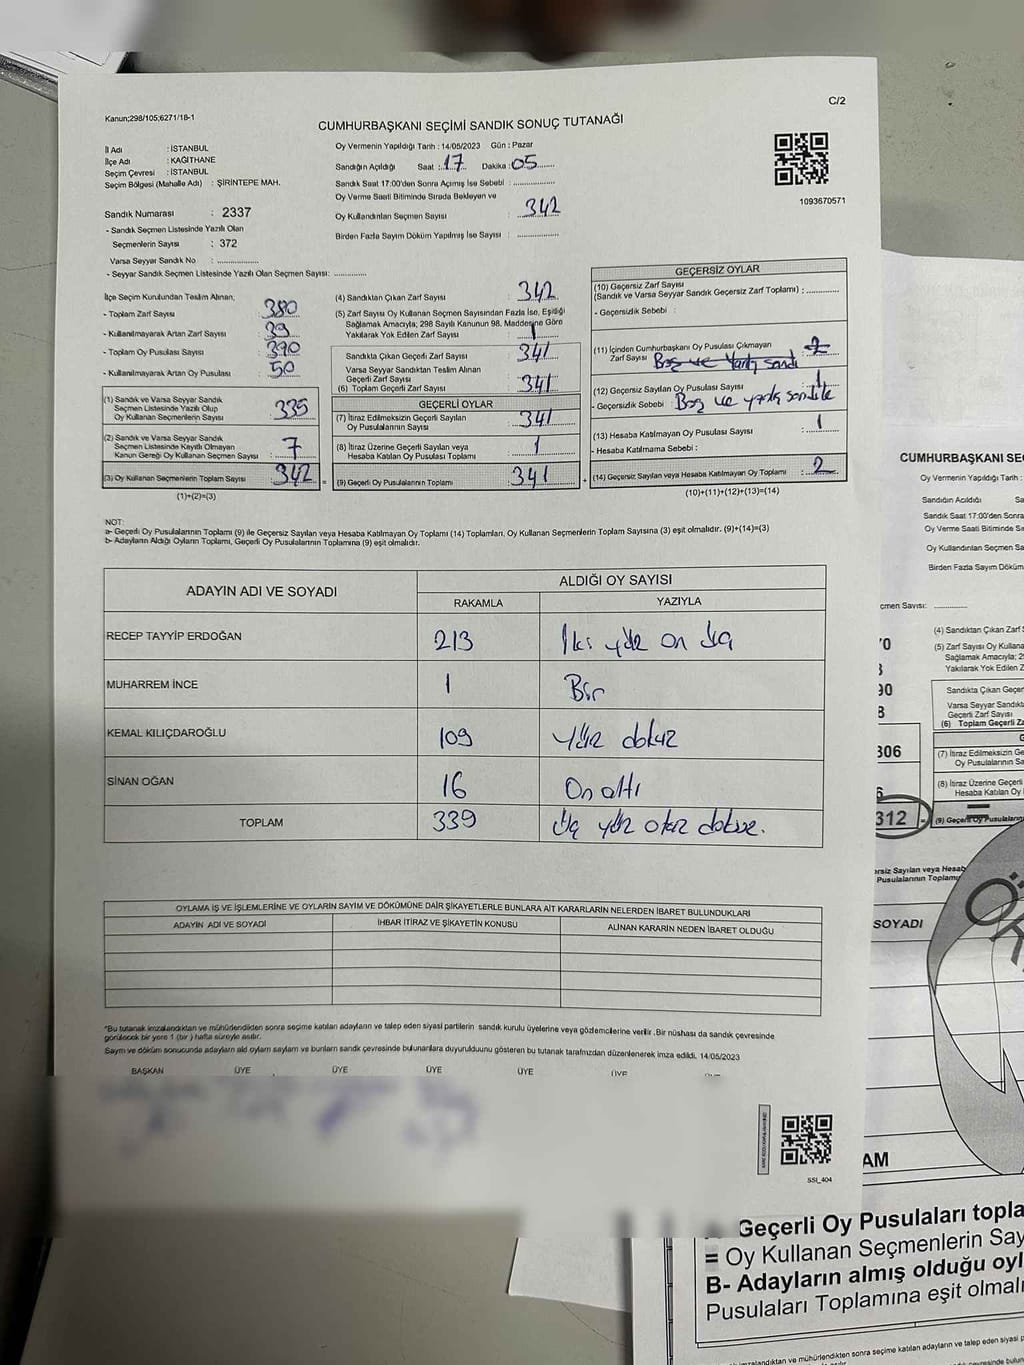 C/2
Kanun;298/105;6271/18-1
CUMHURBAŞKANI SEÇİMİ SANDIK SONUÇ TUTANAĞI
İl Adı : İSTANBUL
İlçe Adı : KAĞITHANE
Seçim Çevresi : İSTANBUL
Seçim Bölgesi (Mahalle Adı) : ŞİRİNTEPE MAH.
Sandık Numarası : 2337
- Sandık Seçmen Listesinde Yazılı Olan
Seçmenlerin Sayısı : 372
Varsa Seyyar Sandık No : ....................
- Seyyar Sandık Seçmen Listesinde Yazılı Olan Seçmen Sayısı: ................
Oy Vermenin Yapıldığı Tarih : 14/05/2023 Gün : Pazar
Sandığın Açıldığı Saat : 17 Dakika : 05
Sandık Saat 17:00'den Sonra Açılmış İse Sebebi : ....................
Oy Verme Saati Bitiminde Sırada Bekleyen ve
Oy Kullandırılan Seçmen Sayısı : 342
Birden Fazla Sayım Döküm Yapılmış İse Sayısı : ....................
1093670571
İlçe Seçim Kurulundan Teslim Alınan;
- Toplam Zarf Sayısı : 380
- Kullanılmayarak Artan Zarf Sayısı : 39
- Toplam Oy Pusulası Sayısı : 390
- Kullanılmayarak Artan Oy Pusulası : 50
(1) Sandık ve Varsa Seyyar Sandık
Seçmen Listesinde Yazılı Olup
Oy Kullanan Seçmenlerin Sayısı : 335
(2) Sandık ve Varsa Seyyar Sandık
Seçmen Listesinde Kayıtlı Olmayan
Kanun Gereği Oy Kullanan Seçmen Sayısı : 7
(3) Oy Kullanan Seçmenlerin Toplam Sayısı : 342 =
(1)+(2)=(3)
(4) Sandıktan Çıkan Zarf Sayısı : 342
(5) Zarf Sayısı Oy Kullanan Seçmen Sayısından Fazla İse, Eşitliği
Sağlamak Amacıyla; 298 Sayılı Kanunun 98. Maddesine Göre
Yakılarak Yok Edilen Zarf Sayısı : 1
Sandıkta Çıkan Geçerli Zarf Sayısı : 341
Varsa Seyyar Sandıktan Teslim Alınan
Geçerli Zarf Sayısı
(6) Toplam Geçerli Zarf Sayısı : 341
GEÇERLİ OYLAR
(7) İtiraz Edilmeksizin Geçerli Sayılan
Oy Pusulalarının Sayısı : 341
(8) İtiraz Üzerine Geçerli Sayılan veya
Hesaba Katılan Oy Pusulası Toplamı : 1
(9) Geçerli Oy Pusulalarının Toplamı : 341 +
GEÇERSİZ OYLAR
(10) Geçersiz Zarf Sayısı
(Sandık ve Varsa Seyyar Sandık Geçersiz Zarf Toplamı) : ............
- Geçersizlik Sebebi :
(11) İçinden Cumhurbaşkanı Oy Pusulası Çıkmayan
Zarf Sayısı
(12) Geçersiz Sayılan Oy Pusulası Sayısı : 1
- Geçersizlik Sebebi : Boş ve yanlış sandık
(13) Hesaba Katılmayan Oy Pusulası Sayısı : 1
- Hesaba Katılmama Sebebi :
(14) Geçersiz Sayılan veya Hesaba Katılmayan Oy Toplamı : 2
(10)+(11)+(12)+(13)=(14)
NOT:
a- Geçerli Oy Pusulalarının Toplamı (9) ile Geçersiz Sayılan veya Hesaba Katılmayan Oy Toplamı (14) Toplamları, Oy Kullanan Seçmenlerin Toplam Sayısına (3) eşit olmalıdır. (9)+(14)=(3)
b- Adayların Aldığı Oyların Toplamı, Geçerli Oy Pusulalarının Toplamına (9) eşit olmalıdır.
ADAYIN ADI VE SOYADI
ALDIĞI OY SAYISI
RAKAMLA YAZIYLA
RECEP TAYYİP ERDOĞAN 213 İki yüz on üç
MUHARREM İNCE 1 Bir
KEMAL KILIÇDAROĞLU 109 Yüz dokuz
SİNAN OĞAN 16 On altı
TOPLAM 339 Üç yüz otuz dokuz.
OYLAMA İŞ VE İŞLEMLERİNE VE OYLARIN SAYIM VE DÖKÜMÜNE DAİR ŞİKAYETLERLE BUNLARA AİT KARARLARIN NELERDEN İBARET BULUNDUKLARI
ADAYIN ADI VE SOYADI İHBAR İTİRAZ VE ŞİKAYETİN KONUSU ALINAN KARARIN NEDEN İBARET OLDUĞU
*Bu tutanak imzalandıktan ve mühürlendikten sonra seçime katılan adayların ve talep eden siyasi partilerin sandık kurulu üyelerine veya gözlemcilerine verilir .Bir nüshası da sandık çevresinde
görülecek bir yere 1 (bir ) hafta süreyle asılır.
Sayım ve döküm sonucunda adayların aldı oyların sayların ve bunların sandık çevresinde bulunanlara duyurulduunu gösteren bu tutanak tarafımızdan düzenlenerek imza edildi. 14/05/2023
BAŞKAN ÜYE ÜYE ÜYE ÜYE ÜYE
SSI_404
CUMHURBAŞKANI SE
Oy Vermenin Yapıldığı Tarih :
Sandığın Açıldığı Sa
Sandık Saat 17:00'den Sonra
Oy Verme Saati Bitiminde Sıra
Oy Kullandırılan Seçmen Sa
Birden Fazla Sayım Döküm
çmen Sayısı: ............
(4) Sandıktan Çıkan Zarf S
(5) Zarf Sayısı Oy Kullana
Sağlamak Amacıyla; 2
Yakılarak Yok Edilen Z
90
Sandıkta Çıkan Geçer
Varsa Seyyar Sandıkt
Geçerli Zarf Sayısı
(6) Toplam Geçerli Za
306
(7) İtiraz Edilmeksizin Ge
Oy Pusulalarının Sa
(8) İtiraz Üzerine Geçerli
Hesaba Katılan Oy
312
(9) Geçerli Oy Pusulalarını
ersiz Sayılan veya Hesab
Pusulalarının Toplamı
SOYADI
ÖR
AM
Geçerli Oy Pusulaları topla
= Oy Kullanan Seçmenlerin Say
B- Adayların almış olduğu oyl
Pusulaları Toplamına eşit olmalı